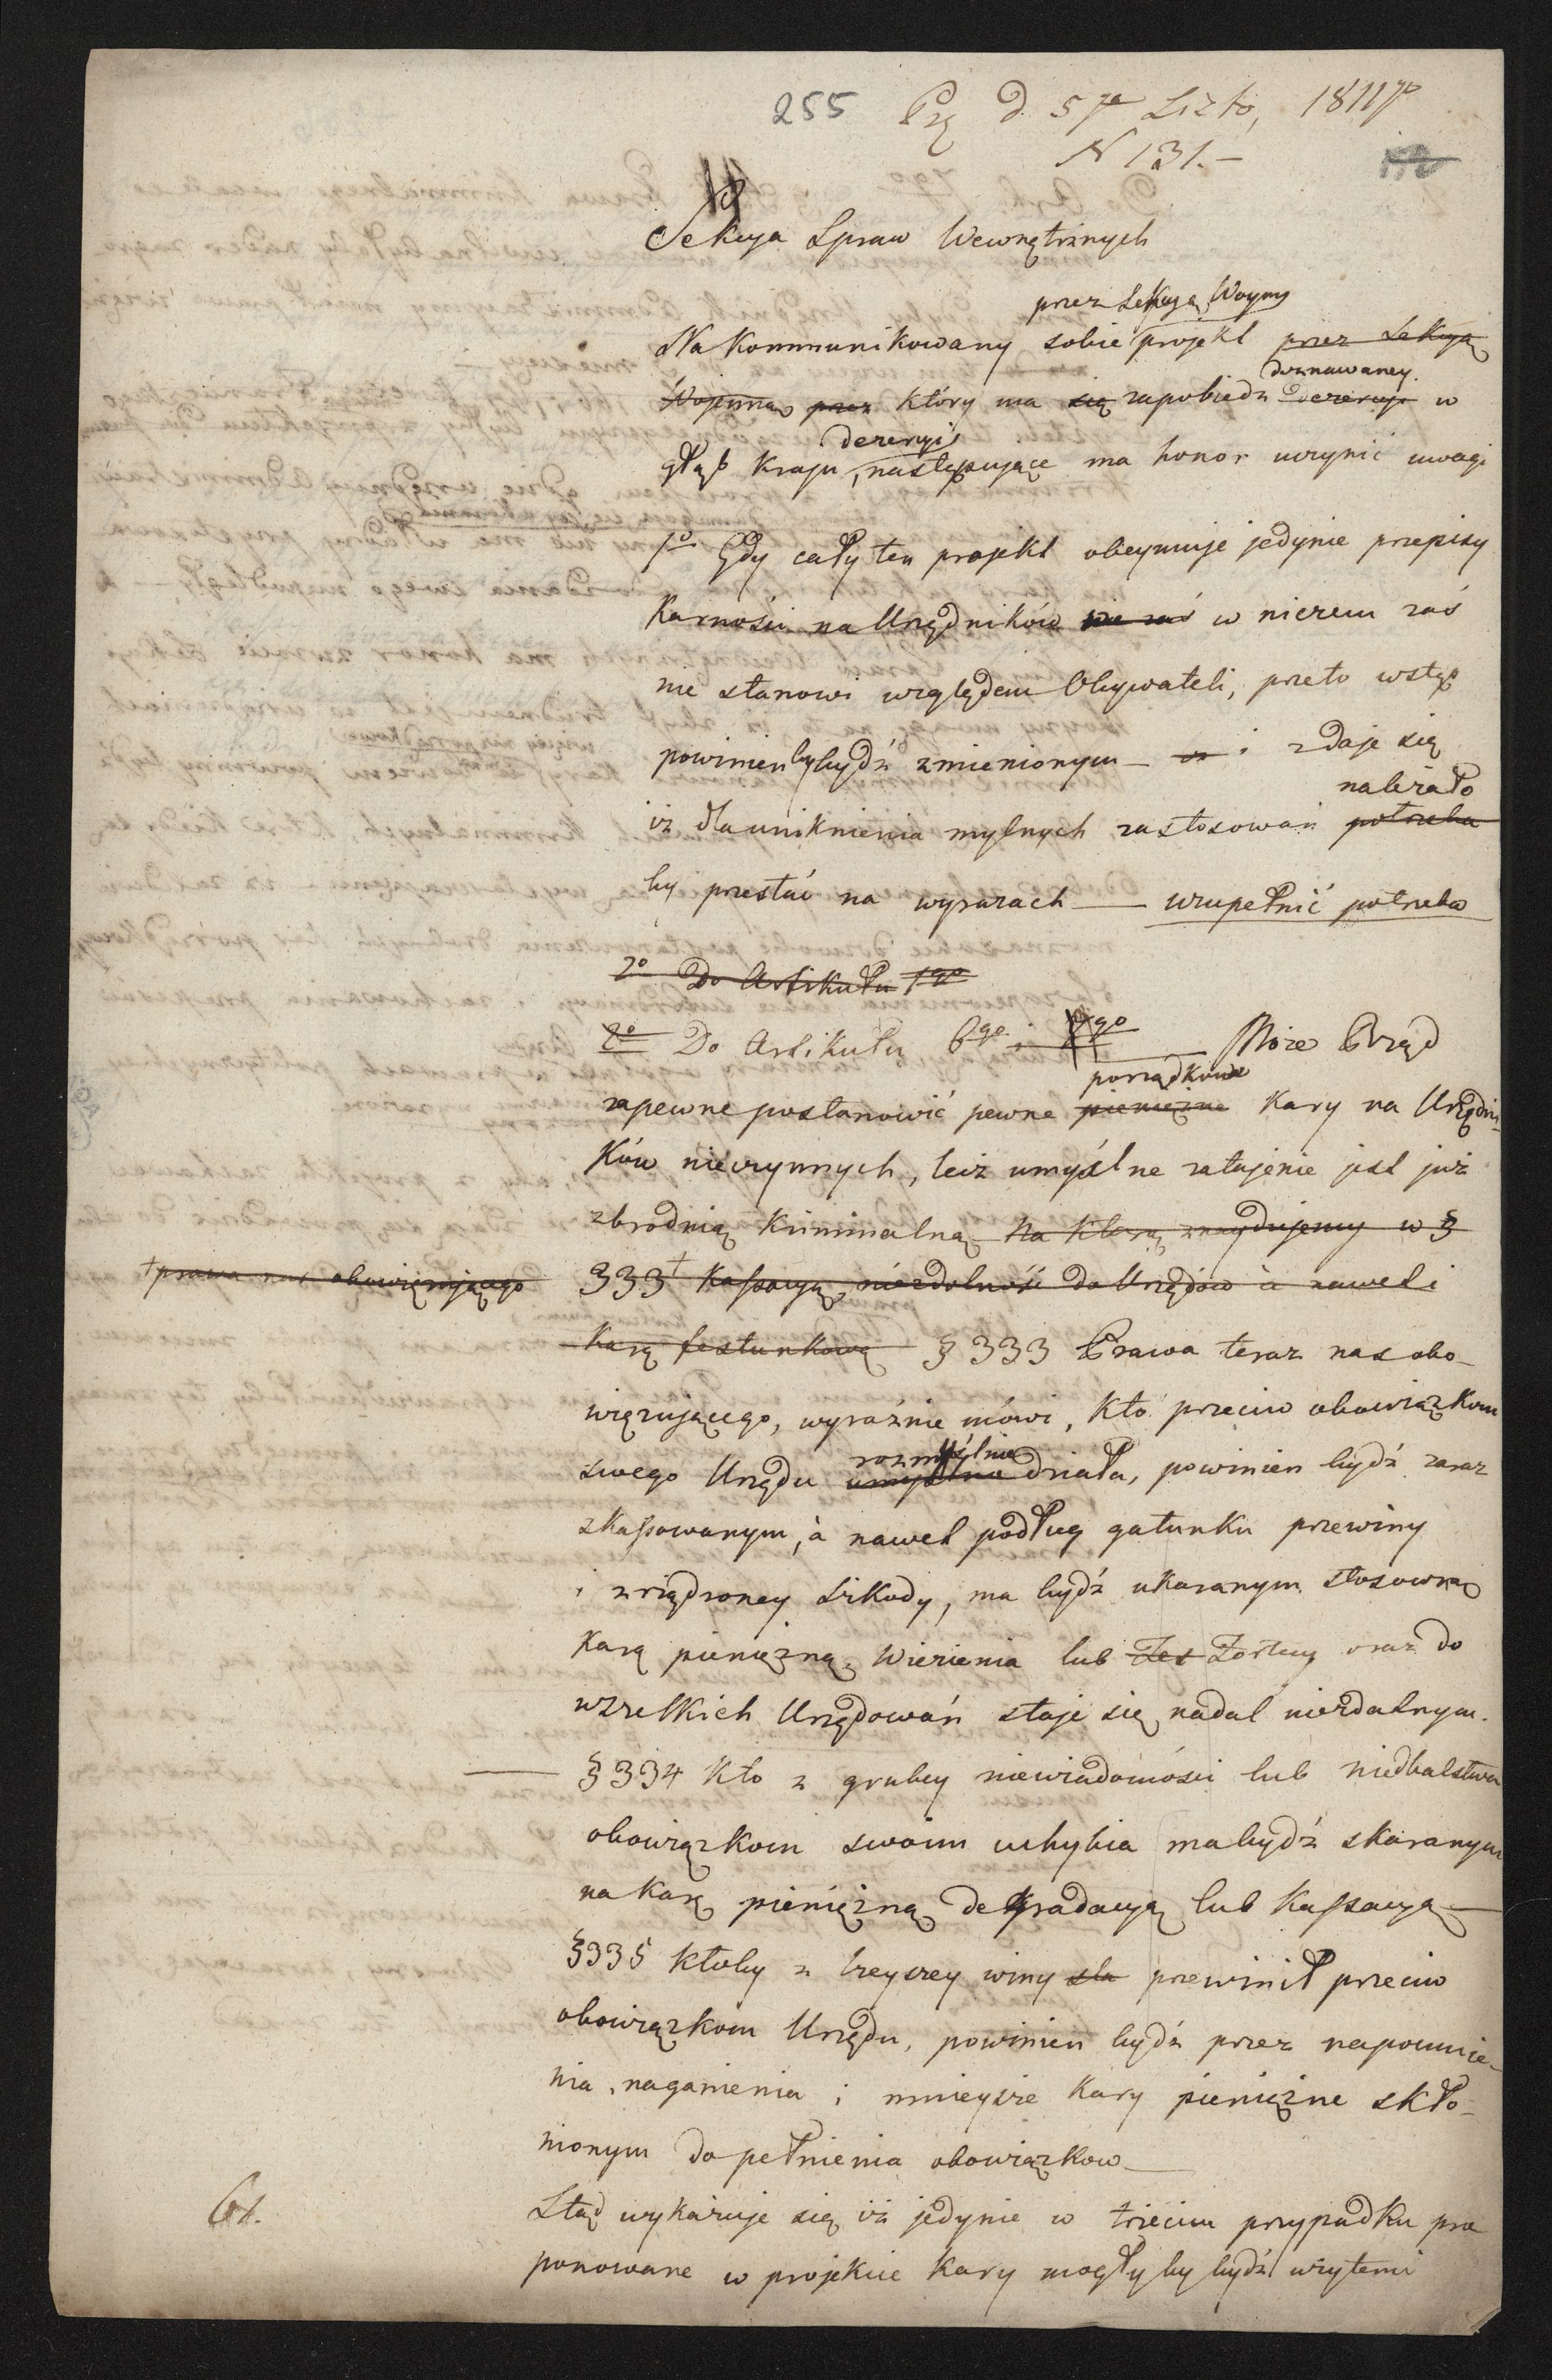 255 Prz d. 5go Lis to, 1811go
N 131.—
Sekcya Spraw Wewnętrznych
przez Sekcyą Woyny
Na kommunikowany sobie projekt przez Sekcyą
doznawaney
Wojenną przez który ma się zapobiedz Dezercyi w
dezercyi
głąb Kraju, następujące ma honor uczynić uwagi
1o Gdy cały ten projekt obeymuje jedynie przepisy
Karności na Urzędników nie zaś w niczem zaś
nie stanowi względem Obywateli, przeto wstęp
powinienby bydź zmienionym — i zdaje się
należało
iż dla uniknienia mylnych zastosowań potrzeba
by przestać na wyrazach — uzupełnić potrzeba
2o Do Artikułu 1go
2o Do Artikułu 6go i 7go — Może Rząd
porządkowe
zapewne postanowić pewne pieniężne Kary na Urzędni-
ków nieczynnych, lecz umyślne zatajenie jest już
zbrodnią Kriminalną na którą znaydujemy w §
†prawa nas obowięzującego
333† Kassacyą, niezdolność do Urzędów à nawet i
karą festunkową § 333 Prawa teraz nas obo-
więzującego, wyraźnie mówi, Kto przeciw obowiązkom
rozmyślnie
swego Urzędu umyślnie działa, powinien bydź zaraz
zkassowanym, à nawet podług gatunku przewiny
i zrządzoney szkody, ma bydź ukaranym stosowną
Karą pieniężną, Wiezienia lub Fes Fortecy oraz do
wszelkich Urzędowań staje się nadal niezdalnym.
— § 334 Kto z grubey niewiadomości lub niedbalstwa
obowiązkom swoim uchybia ma bydź skaranym
na Karę pieniężną degradacyą lub Kassacyą —
§335 Ktoby z lżeyszey winy przewinił przeciw
obowiązkom Urzędu, powinien bydź przez napomnie-
nia, naganienia i mnieysze Kary pieniężne skło-
nionym do pełnienia obowiązkow —
Stąd wykazuje się iż jedynie w trzecim przypadku pro
ponowane w projekcie Kary mogłyby bydź użytemi
61.